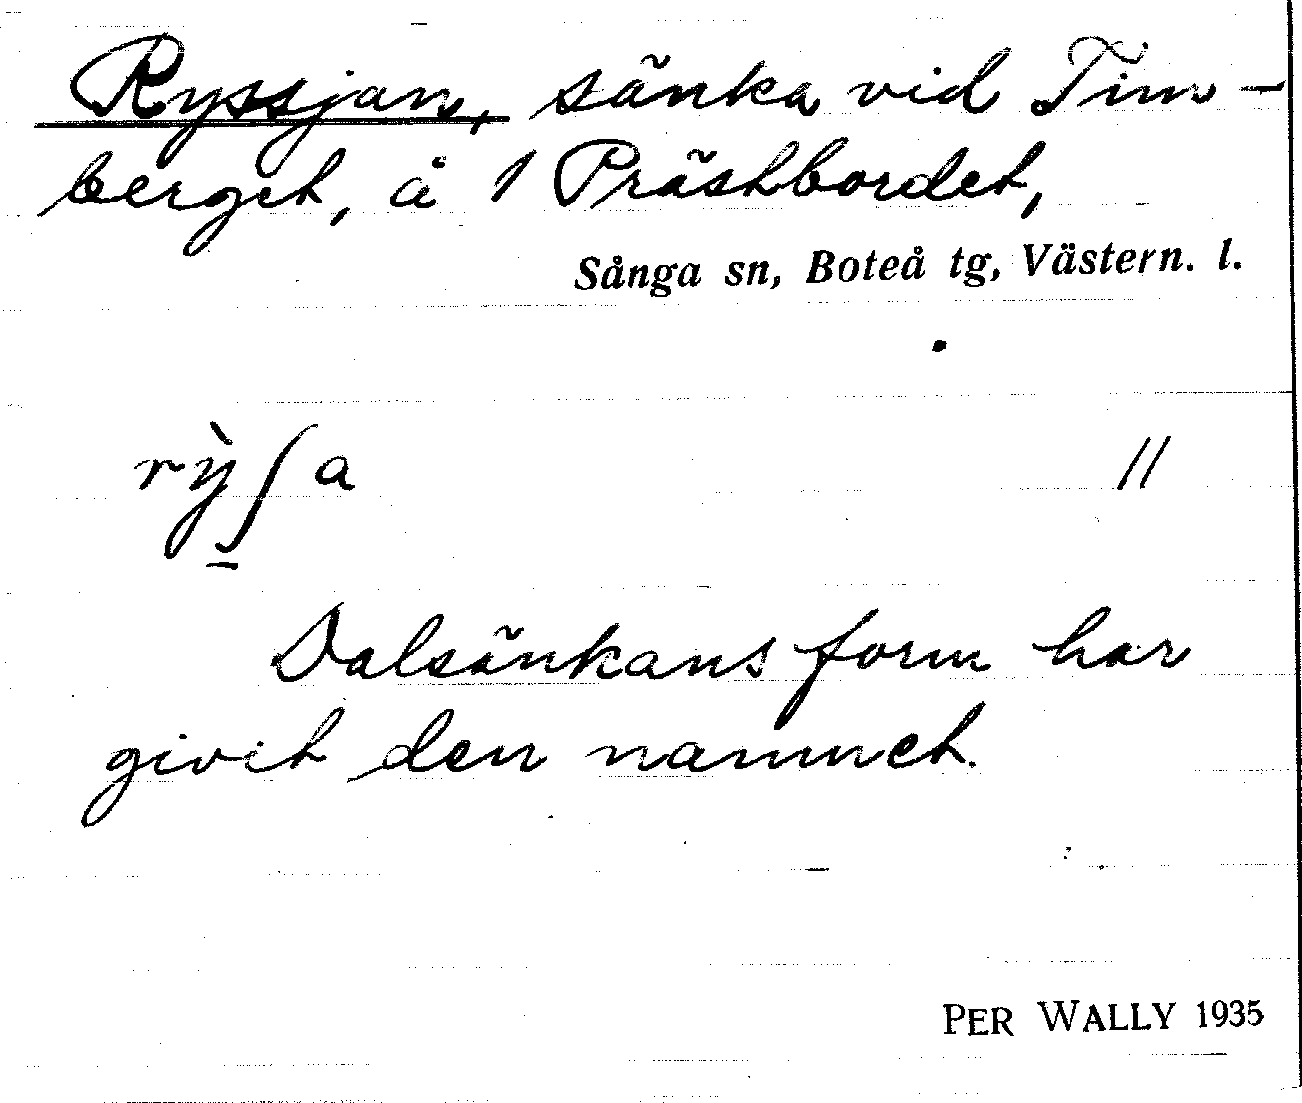 Ryssjan, sänka vid Tim-
berget, å 1 Prästbordet,
Sånga sn, Boteå tg, Västern. l.
rỳʃa //
Dalsänkans form har
givit den namnet.
PER WALLY 1935